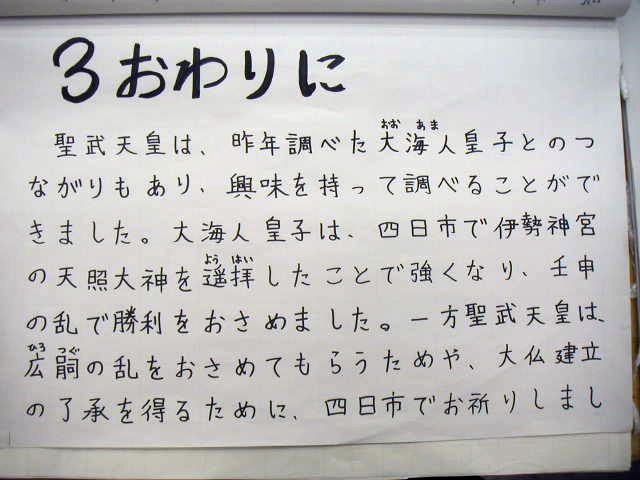 3 おわりに
聖武天皇は、昨年調べた大海人皇子とのつ
ながりもあり、興味を持って調べることがで
きました。大海人皇子は、四日市で伊勢神宮
の天照大神を遥拝したことで強くなり、壬申
の乱で勝利をおさめました。一方聖武天皇は、
広嗣の乱をおさめてもらうためや、大仏建立
の了承を得るために、四日市でお祈りしまし
おお あま
よう はい
ひろ つぐ